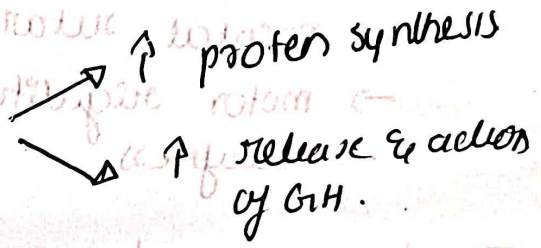 ↑ proten synthesis
↑ release & action
of GH.